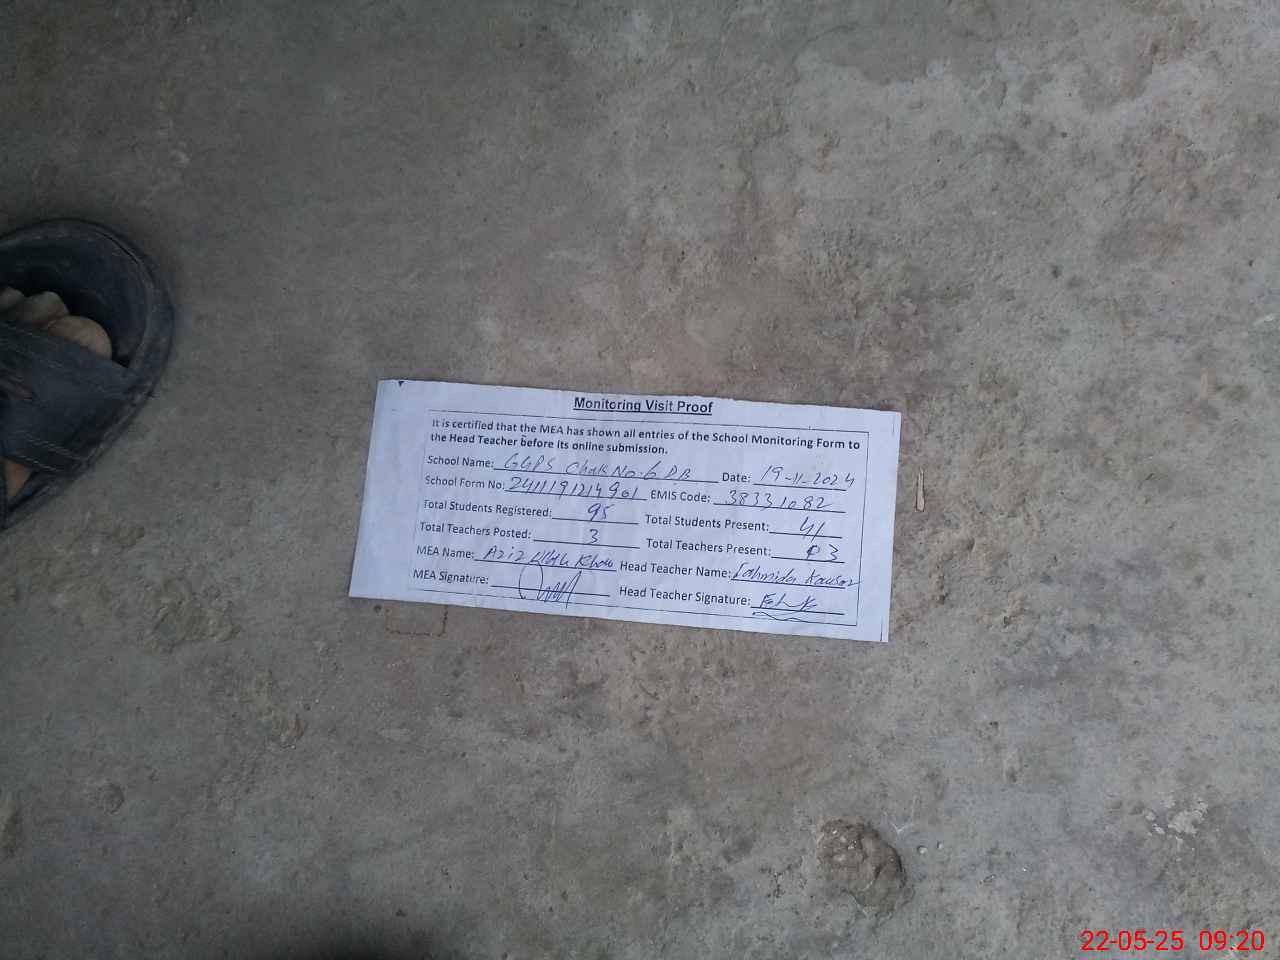 Monitoring Visit Proof
It is certified that the MEA has shown all entries of the School Monitoring Form to
the Head Teacher before its online submission.
School Name: GGPS Chak No. 6 DB Date: 19-11-2024
School Form No: 2411191214901 EMIS Code: 38331082
Total Students Registered: 95 Total Students Present: 41
Total Teachers Posted: 3 Total Teachers Present: 03
MEA Name: Aziz Ullah Khan Head Teacher Name: Fahmida Kausar
MEA Signature: Head Teacher Signature:
22-05-25 09:20